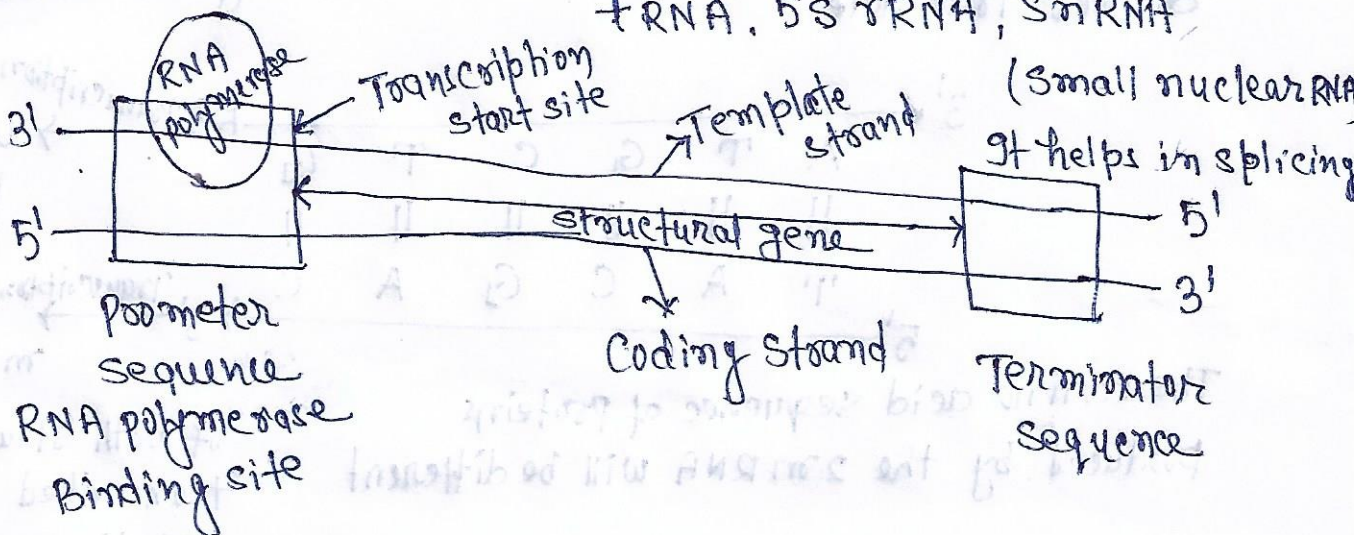 tRNA, 5S rRNA, SnRNA
(Small nuclear RNA
It helps in splicing
RNA
polymerase
Transcription
start site
Template
strand
3'
5'
structural gene
5'
3'
Prometer
sequence
RNA polymerase
Binding site
Coding strand
Terminator
sequence